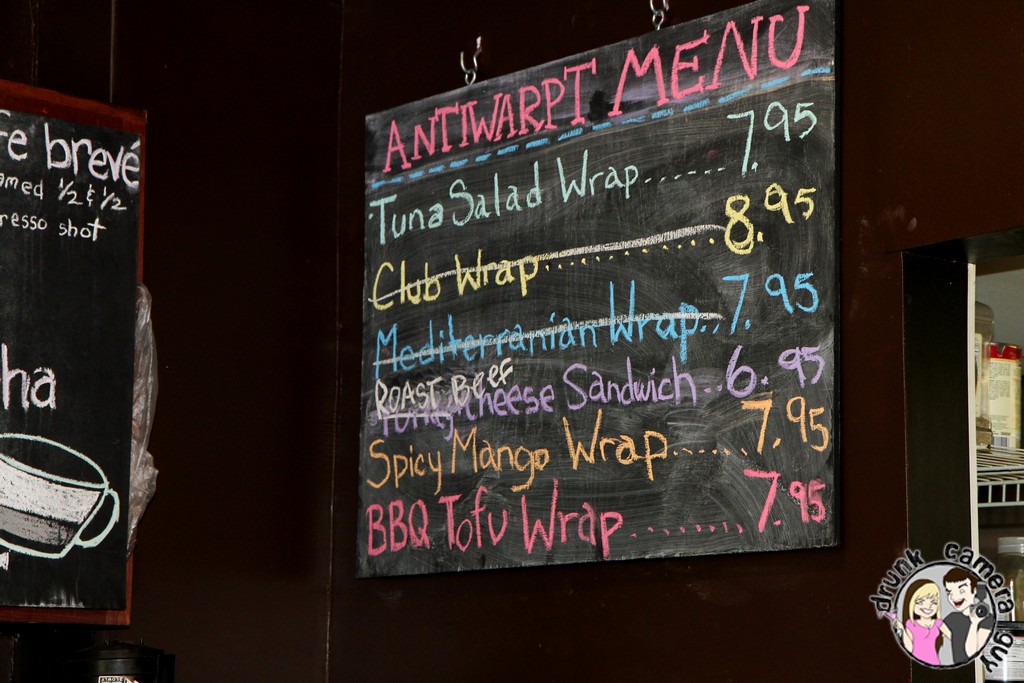 fe brevé
amed 1/2 & 1/2
resso shot
ha
ANTIWARPT MENU
Tuna Salad Wrap....... 7.95
Club Wrap............. 8.95
Mediterranian Wrap... 7.95
ROAST BEEF
Tuna & Cheese Sandwich.. 6.95
Spicy Mango Wrap....... 7.95
BBQ Tofu Wrap ........ 7.95
drunk camera guy